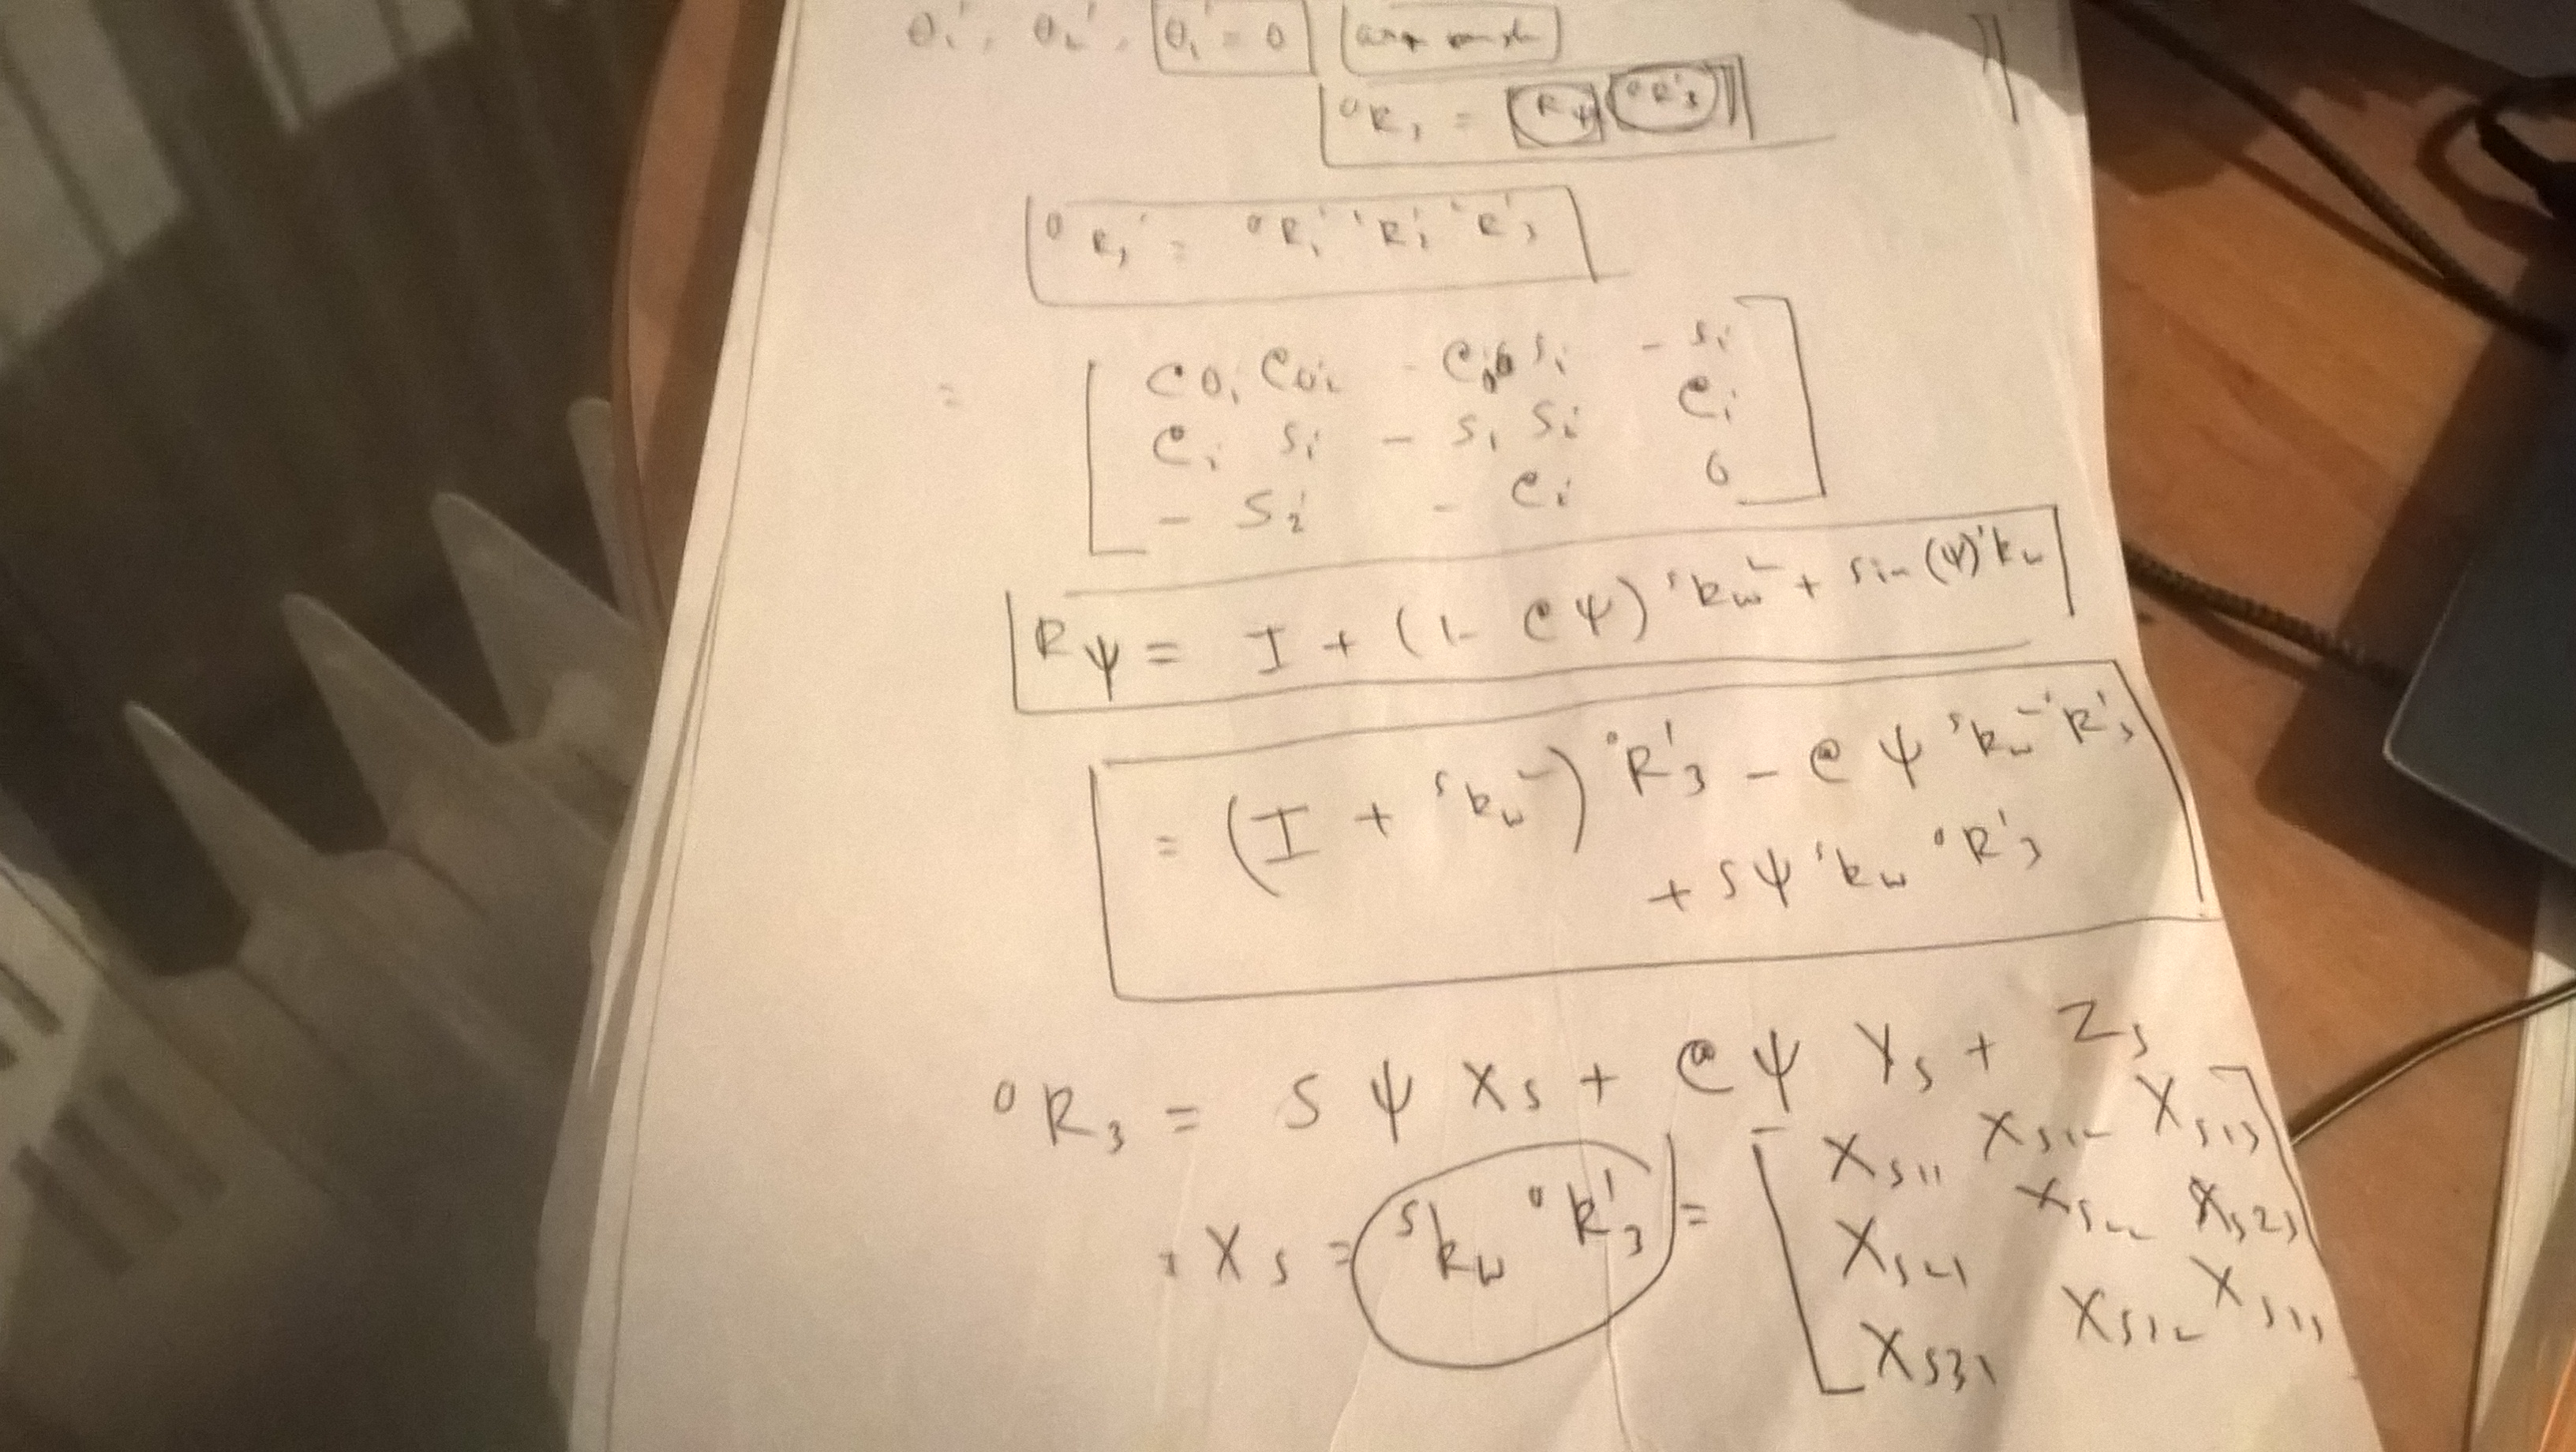 θ₁', θ₂', θ₁' = 0
⁰R₃ = R_ψ ⁰R'₃
⁰R₃' = ⁰R₁' ¹R₂' ²R'₃
= [ Cθ₁ Cθ₂ - C s₁ - s₁
C₁ s₁ - s₁ s₂ C₁
- S₂ - C₂ 0 ]
R_ψ = I + (1 - Cψ) ˢk_w² + sin(ψ) ˢk_w
= (I + ˢk_w²) ⁰R'₃ - Cψ ˢk_w² ⁰R'₃
+ Sψ ˢk_w ⁰R'₃
⁰R₃ = Sψ X_s + Cψ Y_s + Z_s
X_s = ˢk_w ⁰R'₃ = [ X_s11 X_s12 X_s13
X_s21 X_s22 X_s23
X_s31 X_s32 X_s33